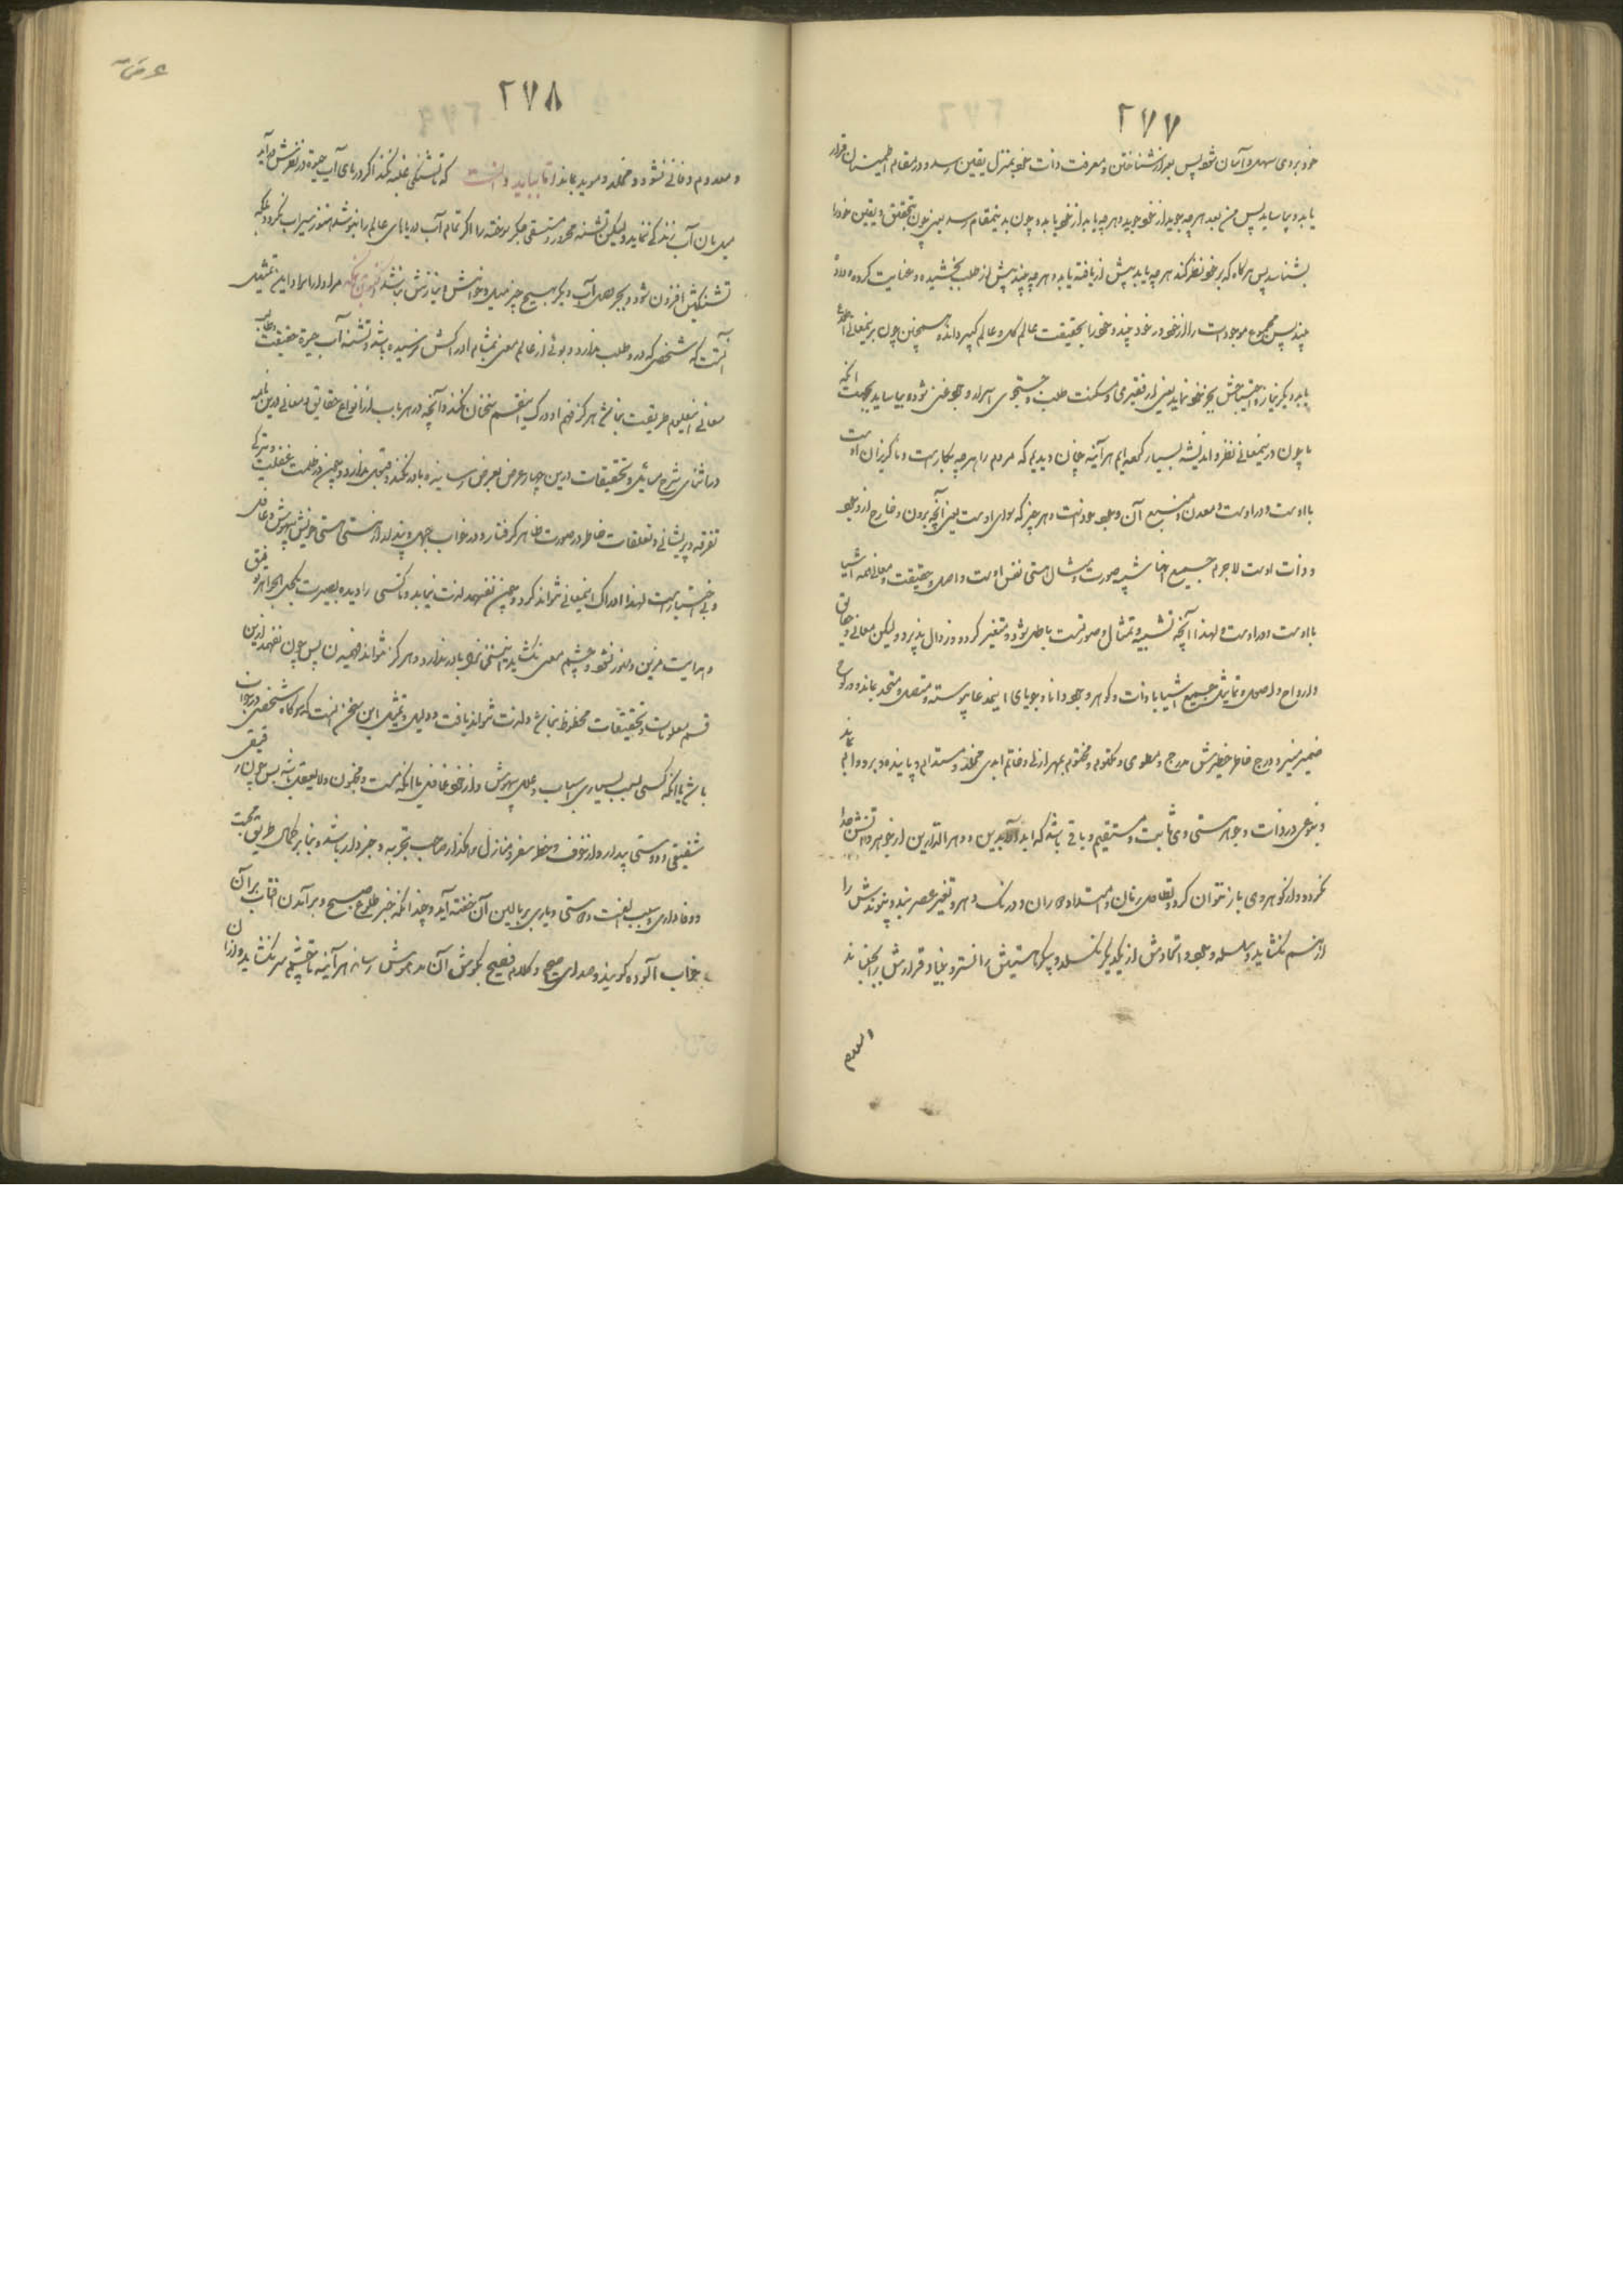 ۲۷۷
خود بروی سهل و آسان شود پس بعد از شناختن و معرفت ذات خود بمنزل یقین رسد و در مقام اطمینان قرار
یابد و بیاساید پس من بعد هر چه جوید از خود جوید و هر چه یابد از خود یابد و چون بدینمقام رسد یعنی چون بتحقیق و یقین خود را
بشناسد پس هرگاه که بر خود نظر کند هر چه یابد پیش از یافته یابد و هر چه بیند پیش از طلب بخشیده و عنایت کرده
بیند پس مجموع موجودات را از خود و در خود بیند و خود را بحقیقت عالم کل و عالم کبیر داند همچنین چون برینمعانی
یابد دیگر نیاز و احتیاجش بجز بخود نماند یعنی از فقیری و مسکنت طلب و جستجوی اسرار وجود غنی شود و بیاساید بجهت آنکه
ما چون درینمعانی نظر و اندیشه بسیار کرده‌ایم هر آینه چنان دیدیم که مردم را هر چه بکار است و ناگزیران اوست
با اوست و در اوست و معدن و منبع آن وجود خود اوست و هر چیز که سوای اوست یعنی آنچه برون و خارج از وجود
و ذات اوست لاجرم جمیع آنها شبیه و صورت و مثال هستی نفس اوست و اصل و حقیقت و معانی همه اشیا
با اوست و در اوست و لهذا آنچه تشبیه و تمثال و صورتست باطل شود و متغیر گردد و زوال پذیرد ولیکن معانی و حقایق
و ارواح و اصول و تماثیل جمیع اشیا با ذات و گوهر وجود دانا و جویای اینمدعا پیوسته و متصل و متحد بماند و در لوح
ضمیر منیر و درج خاطر خطیرش مدرج و مطوی و مکتوم و مختوم بمهر ازلی و خاتم ابدی مخلد و مستدام و پاینده و بر دوام بماند
و بنوعی در ذات و جوهر هستی وی ثابت و مستقیم و باقی باشد که ابد الآبدین و دهر الداهرین از جوهر ذاتش جدا
نگردد و از گوهر وی باز نتوان کرد و تطاول زمان و امتداد دوران و درنگ دهر و تغییر عصر بند و پیوندش را
از هم نگشاید و سلسله وجود و اتحادش از یکدیگر نگسلد و پیکر هستیش را نسترد و بنیاد قرارش را نجنباند
۲۷۸
و معدوم و فانی نشود و مخلد و موید بماند اما بباید دانست که تا تشنگی غلبه نکند اگر دریای آب حیوة در نظرش در آید
میل بان آب زندگی ننماید ولیکن تشنه محرور و مستسقی جگر سوخته را اگر تمام آب دریاهای عالم را بنوشد هنوز سیراب نگردد بلکه
تشنگیش افزون شود و بجز وصل آب دیگر بهیچ چیز میل و خواهش و نیازش نباشد مراد از ایراد این تمثیل
آنست که شخصی که درد طلب ندارد و بوئی از عالم معنی بمشام ادراکش نرسیده باشد و تشنه آب حیوة حقیقت
معانی اینعلم طریقت نباشد هرگز فهم و درک اینقسم سخنان نکند و آنچه در هر باب از انواع حقایق و معانی درین نامه
در اثنای شرح مسائل و تحقیقات درین چهار عرض بعرض رسانیده باور نکند و قبول ندارد و چنین در ظلمت غفلت
تفرقه و پریشانی و تعلقات خاطر در صورت ظاهر گرفتار و در خواب جهل و پندار از مستی هستی خویش بیهوش و غافل
و بی اختیار است لهذا ادراک اینمعانی نتواند کرد و چنین نفهمد لذت نیابد و تا کسی را دیده بصیرت بکحل الجواهر توفیق
و هدایت مزین و منور نشود و چشم معنی نگشاید اینسخن را باور ندارد و هرگز نتواند فهمیدن پس چون نفهمد ازین
قسم معلومات و تحقیقات محظوظ نباشد و لذت نتواند یافت و دلیل و تمثیل این سخن آنست که هرگاه شخصی در خواب
باشد یا آنکه کسی بسبب بسیاری اسباب و علل بیهوش و از خود غافل یا آنکه مست و مجنون و لایعقل باشد پس چون رفیقی
شفیقی و دوستی بیدار و از خوف و خطر سفر و منازل و رهگذار صاحب تجربه و خبردار باشد و بنا بر کمال طریق محبت
و وفاداری و بسبب الفت دوستی و یاری بر بالین آن خفته آید و چندانکه خبر طلوع صبح و برآمدن آفتاب بر آن
خواب آلوده گوید و صدای صریح و کلام فصیح بگوش آن مدهوش رساند هر آینه تا چشم سر نگشاید و از آن